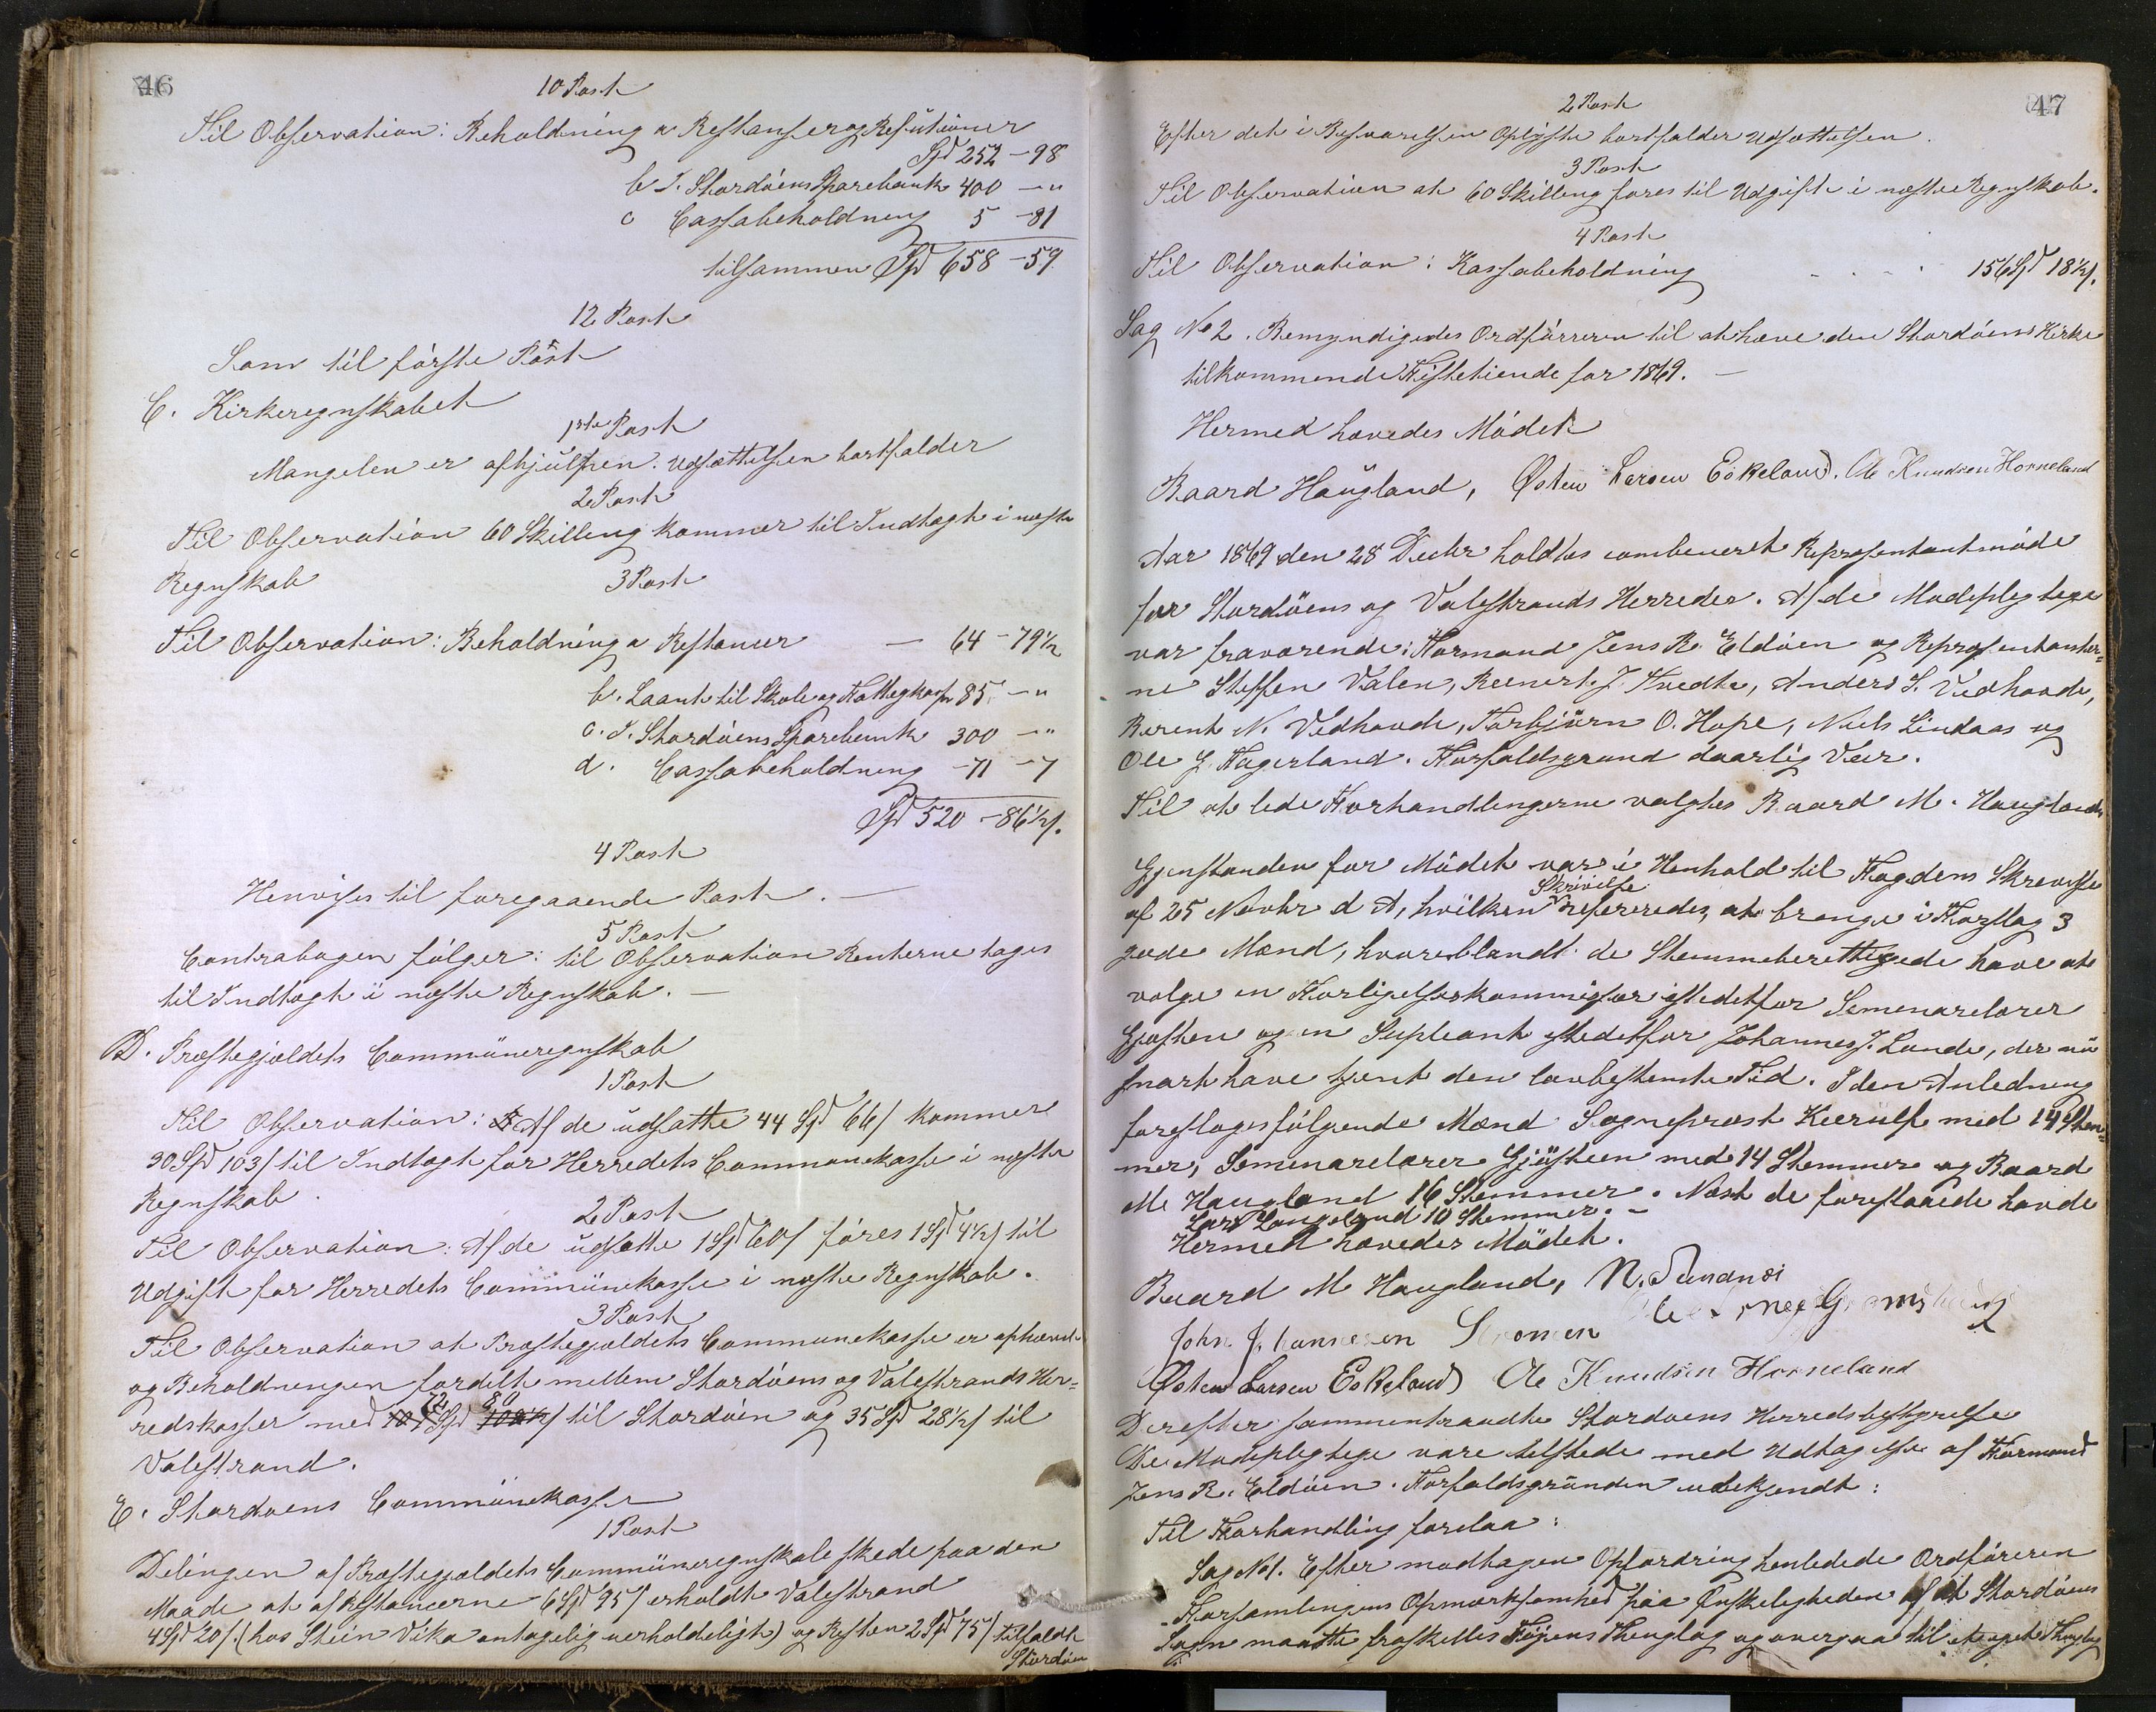 46
10 Post
Til Observation: Beholdning a Restanser og Refusioner
Spd 252 - 98
b I. Stordöens Sparebank 400 - "
c Cassabeholdning 5 - 81
tilsammen Spd 658 - 59
12 Post
Som til förste Post
C. Kirkeregnskabet
1ste Post
Mangelen er afhjulpen. Udsættelsen bortfalder
2 Post
Til Observation 60 Skilling kommer til Indtægt i næste
Regnskab
3 Post
Til Observation: Beholdning a Restancer — 64 - 79 1/2
b. Laant til Skole og Fattigkasse 85 - "
c. I. Stordöens Sparebank 300 - "
d. Cassabeholdning - 71 - 7
Spd 520 - 86 1/2 s.
4 Post
Henvises til foregaaende Post. —
5 Post
Contrabogen fölger: til Observation Renterne tages
til Indtægt i næste Regnskab. —
D. Præstegjældets Communeregnskab
1 Post
Til Observation: Af de udsatte 44 Spd 66 s kommer
30 Spd 103 s til Indtægt for Herredets Communekasse i næste
Regnskab.
2 Post
Til Observation: Af de udsatte 1 Spd 60 s föres 1 Spd 4 1/2 s til
Udgift for Herredets Communekasse i næste Regnskab.
3 Post
Til Observation at Præstegjældets Communekasse er ophævet
og Beholdningen fordelt mellem Stordöens og Valestrands Her=
redskasser med 107 72 Spd 108 1/2 80 s til Stordöen og 35 Spd 28 1/2 s til
Valestrand.
E. Stordöens Communekasse
1 Post
Delingen af Præstegjældets Communeregnskab skede paa den
Maade at af Restancerne 6 Spd 95 s erholdt Valestrand
4 Spd 20 s. (hos Stein Vika antagelig uerholdeligt) og Resten 2 Spd 75 s tilfaldt
Stordöen
47
2 Post
Efter det i Besvarelsen Oplyste bortfalder Udsættelsen.
3 Post
Til Observation at 60 Skilling föres til Udgift i næste Regnskab.
4 Post
Til Observation: Kassabeholdning - - - - 156 Spd 18 1/2 s.
Sag No 2. Bemyndigedes Ordföreren til at hæve den Stordöens Kirke
tilkommende Fisketiende for 1869. —
Hermed hævedes Mödet
Baard Haugland, Østen Larsen Eskeland. Ole Knudsen Horneland
Aar 1869 den 28 Decbr holdtes combineret Repræsentantmöde
for Stordöens og Valestrands Herreder. Af de Mödepligtige
var fraværende: Formand Jens R. Eldöen og Repræsentanter=
ne Steffen Valen, Reinert J. Tvedte, Anders S. Vedhovde,
Berent N. Vedhovde, Torbjörn O. Hope, Niels Lindaas og
Ole J. Fagerland. Forfaldsgrund daarlig Veir.
Til at lede Forhandlingerne valgtes Baard M. Haugland
Gjenstanden for Mödet var i Henhold til Fogdens Skrivelse
af 25 Novbr d A, hvilken Skrivelse refereredes, at bringe i Forslag 3
gode Mænd, hvoriblandt de Stemmeberettigede have at
vælge en Forligelseskommissær istedetfor Seminarelærer
Gjösten og en Supleant istedetfor Johannes J. Lunde, der nu
snart have tjent den lovbestemte Tid. I den Anledning
foresloges fölgende Mænd Sognepræst Kierulf med 14 Stem=
mer, Seminarelærer Gjösteen med 14 Stemmer og Baard
M. Haugland 16 Stemmer. Næst de foreslaaede havde
Lars Langeland 10 Stemmer. -
Hermed hævedes Mödet.
Baard M Haugland, N. Sunanæ
John Johannesen
Østen Larsen Eskeland Ole Knudsen Horneland
Derefter sammentraadte Stordöens Herredsbestyrelse
De Mödepligtige vare tilstede med Undtagelse af Formand
Jens R. Eldöen. Forfaldsgrunden ubekjendt:
Til Forhandling forelaa:
Sag No 1. Efter modtagen Opfordring henledede Ordföreren
Forsamlingens Opmærksomhed paa Önskeligheden af at Stordöens
Sogn maatte fraskilles Föjens Thinglag og overgaa til et eget Thinglag